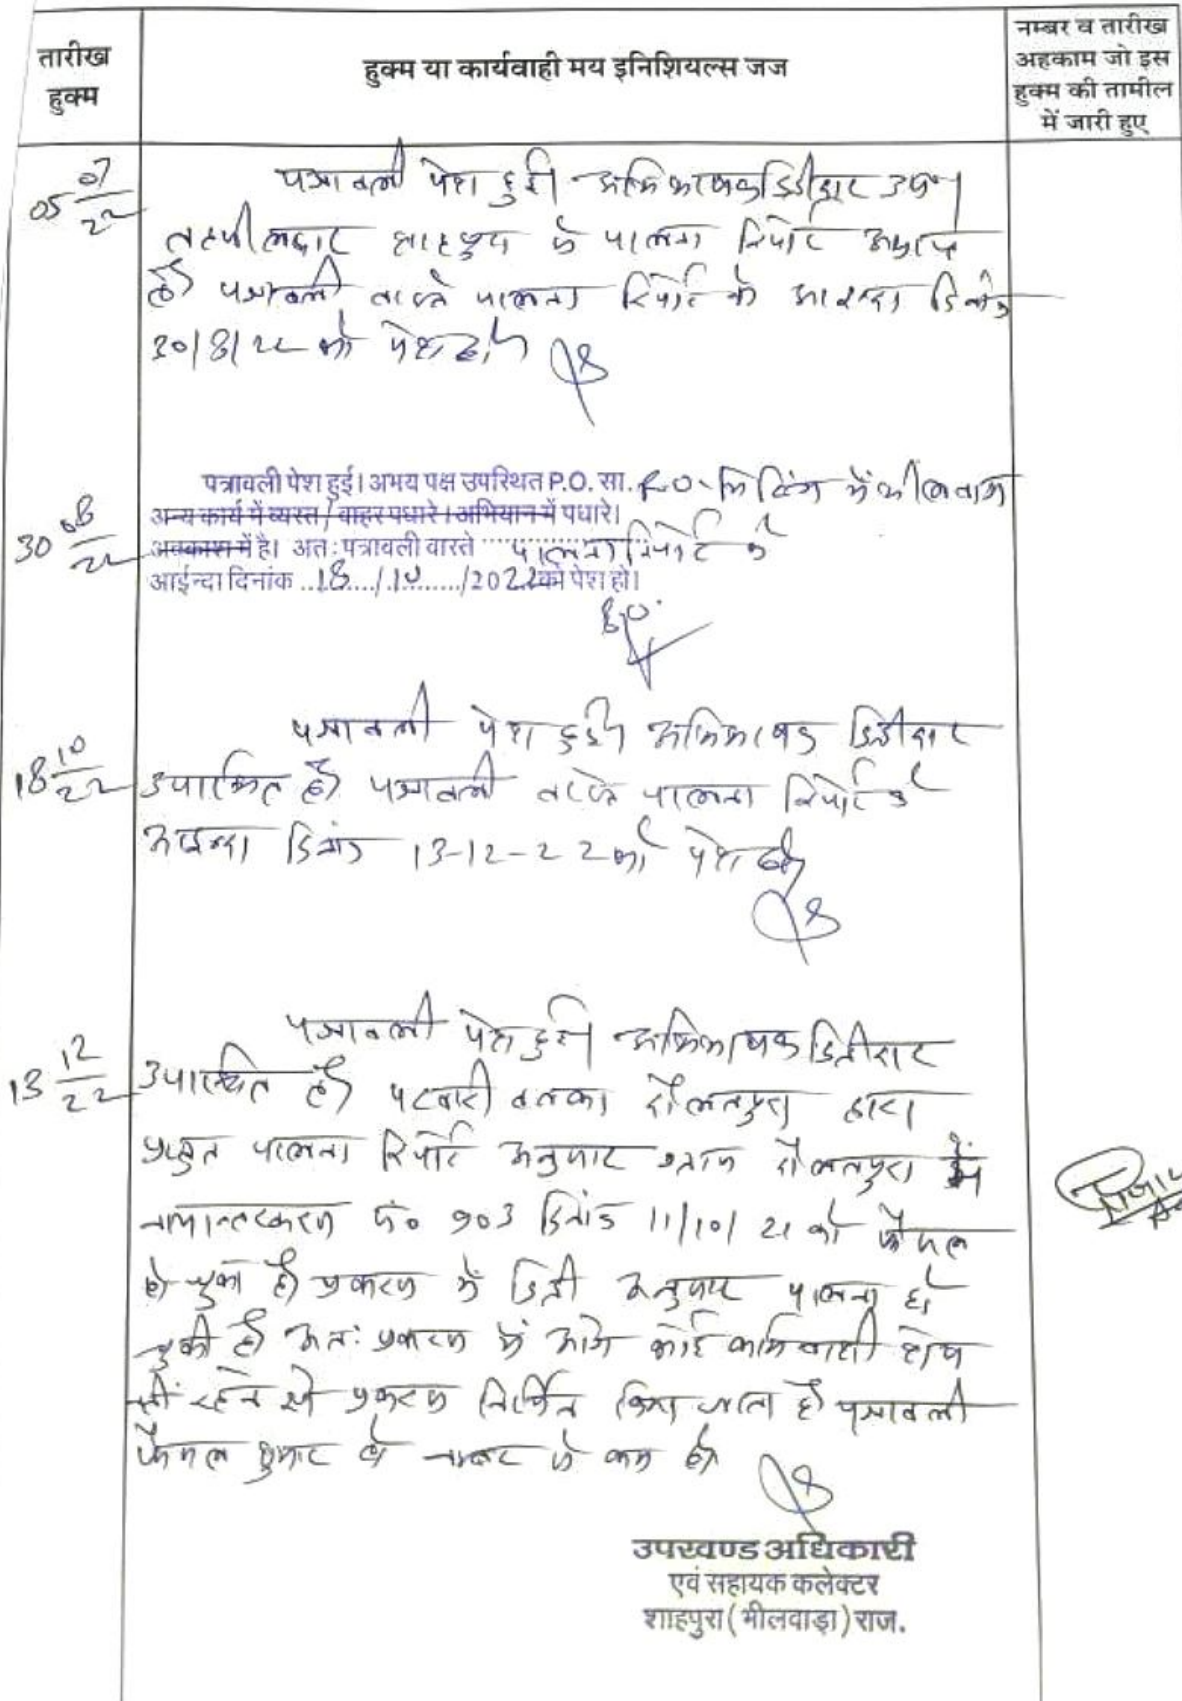 तारीख
हुक्म
हुक्म या कार्यवाही मय इनिशियल्स जज
नम्बर व तारीख
अहकाम जो इस
हुक्म की तामील
में जारी हुए
05 07/22
पत्रावली पेश हुई। अभिभाषक डिक्रीदार उप०।
तहसीलदार शाहपुरा से पालना रिपोर्ट अप्राप्त
है। पत्रावली वास्ते पालना रिपोर्ट के आइन्दा दिनांक
30/8/22 को पेश हो।
30 08/22
पत्रावली पेश हुई। अभय पक्ष उपस्थित P.O. सा. R.O. मिटिंग में भीलवाडा
अन्य कार्य में व्यस्त / बाहर पधारे । अभियान में पधारे।
अवकाश में है। अतः पत्रावली वास्ते पालना रिपोर्ट के
आईन्दा दिनांक ..18.../10....../2022को पेश हो।
18 10/22
पत्रावली पेश हुई। अभिभाषक डिक्रीदार
उपस्थित है। पत्रावली वास्ते पालना रिपोर्ट के
आइन्दा दिनांक 13-12-22 को पेश हो।
13 12/22
पत्रावली पेश हुई। अभिभाषक डिक्रीदार
उपस्थित है। पटवारी हलका दौलतपुरा द्वारा
प्रस्तुत पालना रिपोर्ट अनुसार ग्राम दौलतपुरा में
नामान्तरकरण सं० 903 दिनांक 11/10/21 को फैसल
हो चुका है। प्रकरण में डिक्री अनुसार पालना हो
चुकी है। अतः प्रकरण में आगे कोई कार्यवाही शेष
नहीं रहने से प्रकरण निर्णित किया जाता है। पत्रावली
फैसल शुमार हो नम्बर से कम हो।
उपखण्ड अधिकारी
एवं सहायक कलेक्टर
शाहपुरा (भीलवाड़ा) राज.